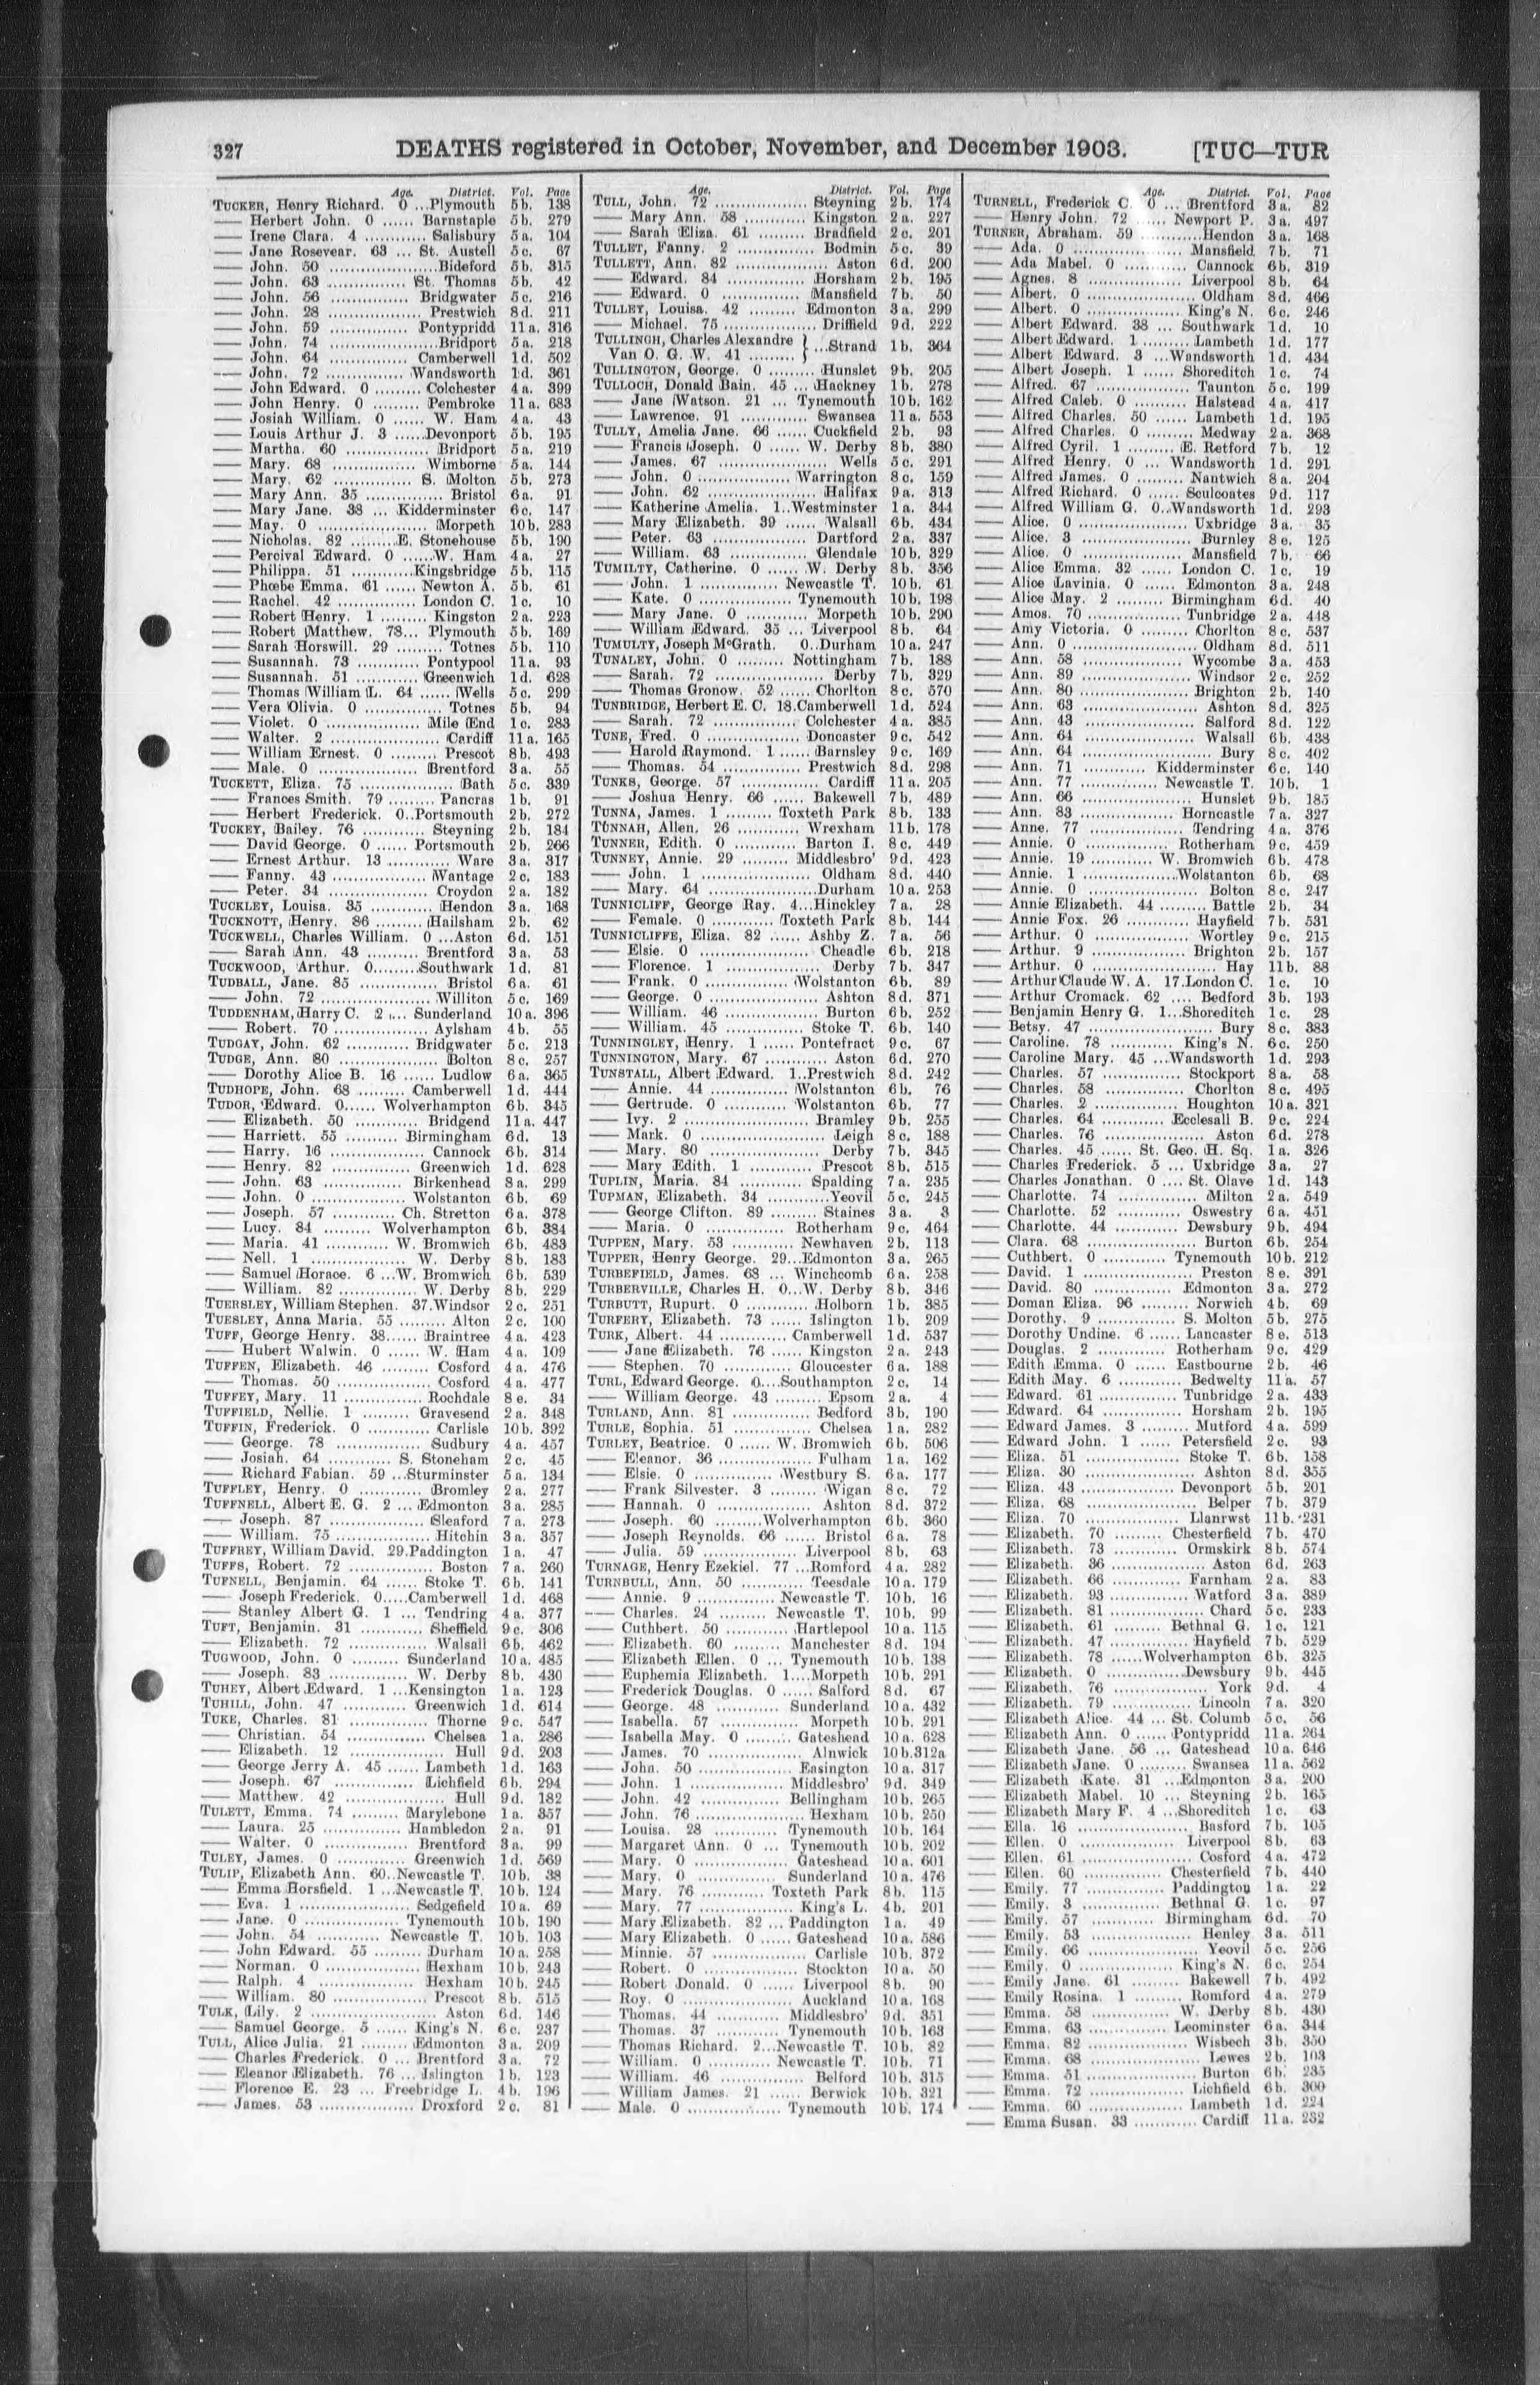 327 DEATHS registered in October, November, and December 1903. [TUC—TUR
Age. District. Vol. Page
TUCKER, Henry Richard. 0 ...Plymouth 5b. 138
—— Herbert John. 0 ...... Barnstaple 5b. 279
—— Irene Clara. 4 ............ Salisbury 5a. 104
—— Jane Rosevear. 63 ... St. Austell 5c. 67
—— John. 50 .....................Bideford 5b. 315
—— John. 63 ............... St. Thomas 5b. 42
—— John. 56 ............ Bridgwater 5c. 216
—— John. 28 .................. Prestwich 8d. 211
—— John. 59 ............... Pontypridd 11a. 316
—— John. 74 .....................Bridport 5a. 218
—— John. 64 ............... Camberwell 1d. 502
—— John. 72 ............... Wandsworth 1d. 361
—— John Edward. 0 ......... Colchester 4a. 399
—— John Henry. 0 ......... Pembroke 11a. 683
—— Josiah William. 0 ...... W. Ham 4a. 43
—— Louis Arthur J. 3 ......Devonport 5b. 195
—— Martha. 60 ............... Bridport 5a. 219
—— Mary. 68 ............... Wimborne 5a. 144
—— Mary. 62 ............... S. Molton 5b. 273
—— Mary Ann. 35 ............... Bristol 6a. 91
—— Mary Jane. 38 ... Kidderminster 6c. 147
—— May. 0 ..................... Morpeth 10b. 283
—— Nicholas. 82 .........E. Stonehouse 5b. 190
—— Percival Edward. 0 ......W. Ham 4a. 27
—— Philippa. 51 ............Kingsbridge 5b. 115
—— Phœbe Emma. 61 ...... Newton A. 5b. 61
—— Rachel. 42 ............... London C. 1c. 10
—— Robert Henry. 1 ......... Kingston 2a. 223
—— Robert Matthew. 78... Plymouth 5b. 169
—— Sarah Horswill. 29 ......... Totnes 5b. 110
—— Susannah. 73 ............ Pontypool 11a. 93
—— Susannah. 51 ............ Greenwich 1d. 628
—— Thomas William L. 64 ...... Wells 5c. 299
—— Vera Olivia. 0 ............... Totnes 5b. 94
—— Violet. 0 .................. Mile End 1c. 283
—— Walter. 2 ..................... Cardiff 11a. 165
—— William Ernest. 0 ......... Prescot 8b. 493
—— Male. 0 .................. Brentford 3a. 55
TUCKETT, Eliza. 75 .................. Bath 5c. 339
—— Frances Smith. 79 ......... Pancras 1b. 91
—— Herbert Frederick. 0..Portsmouth 2b. 272
TUCKEY, Bailey. 76 ............ Steyning 2b. 184
—— David George. 0 ...... Portsmouth 2b. 266
—— Ernest Arthur. 13 ............ Ware 3a. 317
—— Fanny. 43 .................. Wantage 2c. 183
—— Peter. 34 .................. Croydon 2a. 182
TUCKLEY, Louisa. 35 ............ Hendon 3a. 168
TUCKNOTT, Henry. 86 ......... Hailsham 2b. 62
TUCKWELL, Charles William. 0 ...Aston 6d. 151
—— Sarah Ann. 43 ......... Brentford 3a. 53
TUCKWOOD, Arthur. 0.........Southwark 1d. 81
TUDBALL, Jane. 85 ............... Bristol 6a. 61
—— John. 72 ..................... Williton 5c. 169
TUDDENHAM, Harry C. 2 ... Sunderland 10a. 396
—— Robert. 70 .................. Aylsham 4b. 55
TUDGAY, John. 62 ............ Bridgwater 5c. 213
TUDGE, Ann. 80 ..................... Bolton 8c. 257
—— Dorothy Alice B. 16 ...... Ludlow 6a. 365
TUDHOPE, John. 68 ......... Camberwell 1d. 444
TUDOR, Edward. 0...... Wolverhampton 6b. 345
—— Elizabeth. 50 ............ Bridgend 11a. 447
—— Harriett. 55 .......... Birmingham 6d. 13
—— Harry. 16 .................. Cannock 6b. 314
—— Henry. 82 ............... Greenwich 1d. 628
—— John. 63 ............... Birkenhead 8a. 299
—— John. 0 .................. Wolstanton 6b. 69
—— Joseph. 57 ............ Ch. Stretton 6a. 378
—— Lucy. 84 ......... Wolverhampton 6b. 384
—— Maria. 41 ............ W. Bromwich 6b. 483
—— Nell. 1 .................. W. Derby 8b. 183
—— Samuel Horace. 6 ...W. Bromwich 6b. 539
—— William. 82 ............... W. Derby 8b. 229
TUERSLEY, William Stephen. 37.Windsor 2c. 251
TUESLEY, Anna Maria. 55 ......... Alton 2c. 100
TUFF, George Henry. 38...... Braintree 4a. 423
—— Hubert Walwin. 0 ...... W. Ham 4a. 109
TUFFEN, Elizabeth. 46 ......... Cosford 4a. 476
—— Thomas. 50 .................. Cosford 4a. 477
TUFFEY, Mary. 11 ............... Rochdale 8e. 34
TUFFIELD, Nellie. 1 ......... Gravesend 2a. 348
TUFFIN, Frederick. 0 ............ Carlisle 10b. 392
—— George. 78 .................. Sudbury 4a. 457
—— Josiah. 64 ............ S. Stoneham 2c. 45
—— Richard Fabian. 59 ...Sturminster 5a. 134
TUFFLEY, Henry. 0 ............... Bromley 2a. 277
TUFFNELL, Albert E. G. 2 ... Edmonton 3a. 285
—— Joseph. 87 .................. Sleaford 7a. 273
—— William. 75 .................. Hitchin 3a. 357
TUFFREY, William David. 29.Paddington 1a. 47
TUFFS, Robert. 72 .................. Boston 7a. 260
TUFNELL, Benjamin. 64 ...... Stoke T. 6b. 141
—— Joseph Frederick. 0.....Camberwell 1d. 468
—— Stanley Albert G. 1 ... Tendring 4a. 377
TUFT, Benjamin. 31 ............ Sheffield 9c. 306
—— Elizabeth. 72 ............... Walsall 6b. 462
TUGWOOD, John. 0 ......... Sunderland 10a. 485
—— Joseph. 83 ............... W. Derby 8b. 430
TUHEY, Albert Edward. 1 ...Kensington 1a. 123
TUHILL, John. 47 ............ Greenwich 1d. 614
TUKE, Charles. 81 ............... Thorne 9c. 547
—— Christian. 54 ............... Chelsea 1a. 286
—— Elizabeth. 12 .................. Hull 9d. 203
—— George Jerry A. 45 ...... Lambeth 1d. 163
—— Joseph. 67 ............... Lichfield 6b. 294
—— Matthew. 42 .................. Hull 9d. 182
TULETT, Emma. 74 ......... Marylebone 1a. 357
—— Laura. 25 ............... Hambledon 2a. 91
—— Walter. 0 ............... Brentford 3a. 99
TULEY, James. 0 ............ Greenwich 1d. 569
TULIP, Elizabeth Ann. 60..Newcastle T. 10b. 38
—— Emma Horsfield. 1 ...Newcastle T. 10b. 124
—— Eva. 1 ..................... Sedgefield 10a. 69
—— Jane. 0 .................. Tynemouth 10b. 190
—— John. 54 ............ Newcastle T. 10b. 103
—— John Edward. 55 ......... Durham 10a. 258
—— Norman. 0 .................. Hexham 10b. 243
—— Ralph. 4 ..................... Hexham 10b. 245
—— William. 80 .................. Prescot 8b. 515
TULK, Lily. 2 ..................... Aston 6d. 146
—— Samuel George. 5 ...... King's N. 6c. 237
TULL, Alice Julia. 21 ......... Edmonton 3a. 209
—— Charles Frederick. 0 ... Brentford 3a. 72
—— Eleanor Elizabeth. 76 ... Islington 1b. 123
—— Florence E. 23 ... Freebridge L. 4b. 196
—— James. 53 .................. Droxford 2c. 81
Age. District. Vol. Page
TULL, John. 72 .................. Steyning 2b. 174
—— Mary Ann. 58 ............ Kingston 2a. 227
—— Sarah Eliza. 61 ......... Bradfield 2c. 201
TULLET, Fanny. 2 .................. Bodmin 5c. 39
TULLETT, Ann. 82 .................. Aston 6d. 200
—— Edward. 84 .................. Horsham 2b. 195
—— Edward. 0 ............... Mansfield 7b. 50
TULLEY, Louisa. 42 ......... Edmonton 3a. 299
—— Michael. 75 .................. Driffield 9d. 222
TULLINGH, Charles Alexandre
Van O. G. W. 41 ......... } ...Strand 1b. 364
TULLINGTON, George. 0 ......... Hunslet 9b. 205
TULLOCH, Donald Bain. 45 ... Hackney 1b. 278
—— Jane Watson. 21 ... Tynemouth 10b. 162
—— Lawrence. 91 ............... Swansea 11a. 553
TULLY, Amelia Jane. 66 ...... Cuckfield 2b. 93
—— Francis Joseph. 0 ...... W. Derby 8b. 380
—— James. 67 ..................... Wells 5c. 291
—— John. 0 .................. Warrington 8c. 159
—— John. 62 ..................... Halifax 9a. 313
—— Katherine Amelia. 1..Westminster 1a. 344
—— Mary Elizabeth. 39 ...... Walsall 6b. 434
—— Peter. 63 .................. Dartford 2a. 337
—— William. 63 ............... Glendale 10b. 329
TUMILTY, Catherine. 0 ...... W. Derby 8b. 356
—— John. 1 ............... Newcastle T. 10b. 61
—— Kate. 0 .................. Tynemouth 10b. 198
—— Mary Jane. 0 ............ Morpeth 10b. 290
—— William Edward. 35 ... Liverpool 8b. 64
TUMULTY, Joseph McGrath. 0..Durham 10a. 247
TUNALEY, John. 0 ......... Nottingham 7b. 188
—— Sarah. 72 ..................... Derby 7b. 329
—— Thomas Gronow. 52 ...... Chorlton 8c. 570
TUNBRIDGE, Herbert E. C. 18.Camberwell 1d. 524
—— Sarah. 72 ............... Colchester 4a. 385
TUNE, Fred. 0 ............... Doncaster 9c. 542
—— Harold Raymond. 1 ...... Barnsley 9c. 169
—— Thomas. 54 ............... Prestwich 8d. 298
TUNKS, George. 57 ............... Cardiff 11a. 205
—— Joshua Henry. 66 ...... Bakewell 7b. 489
TUNNA, James. 1 ......... Toxteth Park 8b. 133
TUNNAH, Allen. 26 ............ Wrexham 11b. 178
TUNNER, Edith. 0 ............ Barton I. 8c. 449
TUNNEY, Annie. 29 ......... Middlesbro' 9d. 423
—— John. 1 ..................... Oldham 8d. 440
—— Mary. 64 .....................Durham 10a. 253
TUNNICLIFF, George Ray. 4...Hinckley 7a. 28
—— Female. 0 ............ Toxteth Park 8b. 144
TUNNICLIFFE, Eliza. 82 ...... Ashby Z. 7a. 56
—— Elsie. 0 ..................... Cheadle 6b. 218
—— Florence. 1 .................. Derby 7b. 347
—— Frank. 0 .................. Wolstanton 6b. 89
—— George. 0 ..................... Ashton 8d. 371
—— William. 46 .................. Burton 6b. 252
—— William. 45 ............... Stoke T. 6b. 140
TUNNINGLEY, Henry. 1 ...... Pontefract 9c. 67
TUNNINGTON, Mary. 67 ............ Aston 6d. 270
TUNSTALL, Albert Edward. 1..Prestwich 8d. 242
—— Annie. 44 ............... Wolstanton 6b. 76
—— Gertrude. 0 ............ Wolstanton 6b. 77
—— Ivy. 2 ........................ Bramley 9b. 255
—— Mark. 0 ........................ Leigh 8c. 188
—— Mary. 80 ..................... Derby 7b. 345
—— Mary Edith. 1 ............ Prescot 8b. 515
TUPLIN, Maria. 84 ............... Spalding 7a. 235
TUPMAN, Elizabeth. 34 ............Yeovil 5c. 245
—— George Clifton. 89 ......... Staines 3a. 3
—— Maria. 0 .................. Rotherham 9c. 464
TUPPEN, Mary. 53 ............ Newhaven 2b. 113
TUPPER, Henry George. 29...Edmonton 3a. 265
TURBEFIELD, James. 68 ... Winchcomb 6a. 258
TURBERVILLE, Charles H. 0...W. Derby 8b. 346
TURBUTT, Rupurt. 0 ............ Holborn 1b. 385
TURFERY, Elizabeth. 73 ...... Islington 1b. 209
TURK, Albert. 44 ............ Camberwell 1d. 537
—— Jane Elizabeth. 76 ...... Kingston 2a. 243
—— Stephen. 70 ............ Gloucester 6a. 188
TURL, Edward George. 0....Southampton 2c. 14
—— William George. 43 ......... Epsom 2a. 4
TURLAND, Ann. 81 ............... Bedford 3b. 190
TURLE, Sophia. 51 ............... Chelsea 1a. 282
TURLEY, Beatrice. 0 ...... W. Bromwich 6b. 506
—— Eleanor. 36 .................. Fulham 1a. 162
—— Elsie. 0 ............... Westbury S. 6a. 177
—— Frank Silvester. 3 ......... Wigan 8c. 72
—— Hannah. 0 .................. Ashton 8d. 372
—— Joseph. 60 .........Wolverhampton 6b. 360
—— Joseph Reynolds. 66 ...... Bristol 6a. 78
—— Julia. 59 .................. Liverpool 8b. 63
TURNAGE, Henry Ezekiel. 77 ...Romford 4a. 282
TURNBULL, Ann. 50 ............ Teesdale 10a. 179
—— Annie. 9 ............... Newcastle T. 10b. 16
—— Charles. 24 ......... Newcastle T. 10b. 99
—— Cuthbert. 50 ............ Hartlepool 10a. 115
—— Elizabeth. 60 ......... Manchester 8d. 194
—— Elizabeth Ellen. 0 ... Tynemouth 10b. 138
—— Euphemia Elizabeth. 1....Morpeth 10b. 291
—— Frederick Douglas. 0 ...... Salford 8d. 67
—— George. 48 ............ Sunderland 10a. 432
—— Isabella. 57 ............... Morpeth 10b. 291
—— Isabella May. 0 ......... Gateshead 10a. 628
—— James. 70 .................. Alnwick 10b.312a
—— John. 50 .................. Easington 10a. 317
—— John. 1 ............... Middlesbro' 9d. 349
—— John. 42 ............... Bellingham 10b. 265
—— John. 76 ..................... Hexham 10b. 250
—— Louisa. 28 ............ Tynemouth 10b. 164
—— Margaret Ann. 0 ... Tynemouth 10b. 202
—— Mary. 0 .................. Gateshead 10a. 601
—— Mary. 0 .................. Sunderland 10a. 476
—— Mary. 76 ............ Toxteth Park 8b. 115
—— Mary. 77 .................. King's L. 4b. 201
—— Mary Elizabeth. 82 ... Paddington 1a. 49
—— Mary Elizabeth. 0 ...... Gateshead 10a. 586
—— Minnie. 57 .................. Carlisle 10b. 372
—— Robert. 0 .................. Stockton 10a. 50
—— Robert Donald. 0 ...... Liverpool 8b. 90
—— Roy. 0 ..................... Auckland 10a. 168
—— Thomas. 44 ............ Middlesbro' 9d. 351
—— Thomas. 37 ............ Tynemouth 10b. 163
—— Thomas Richard. 2...Newcastle T. 10b. 82
—— William. 0 ............ Newcastle T. 10b. 71
—— William. 46 .................. Belford 10b. 315
—— William James. 21 ...... Berwick 10b. 321
—— Male. 0 .................. Tynemouth 10b. 174
Age. District. Vol. Page
TURNELL, Frederick C. 0 ... Brentford 3a. 82
—— Henry John. 72 ...... Newport P. 3a. 497
TURNER, Abraham. 59 ............Hendon 3a. 168
—— Ada. 0 ..................... Mansfield 7b. 71
—— Ada Mabel. 0 ............ Cannock 6b. 319
—— Agnes. 8 .................. Liverpool 8b. 64
—— Albert. 0 ..................... Oldham 8d. 466
—— Albert. 0 ..................... King's N. 6c. 246
—— Albert Edward. 38 ... Southwark 1d. 10
—— Albert Edward. 1 ......... Lambeth 1d. 177
—— Albert Edward. 3 ...Wandsworth 1d. 434
—— Albert Joseph. 1 ...... Shoreditch 1c. 74
—— Alfred. 67 .................. Taunton 5c. 199
—— Alfred Caleb. 0 .......... Halstead 4a. 417
—— Alfred Charles. 50 ...... Lambeth 1d. 195
—— Alfred Charles. 0 ......... Medway 2a. 368
—— Alfred Cyril. 1 ......... E. Retford 7b. 12
—— Alfred Henry. 0 ... Wandsworth 1d. 291
—— Alfred James. 0 ......... Nantwich 8a. 204
—— Alfred Richard. 0 ...... Sculcoates 9d. 117
—— Alfred William G. 0..Wandsworth 1d. 293
—— Alice. 0 ..................... Uxbridge 3a. 35
—— Alice. 3 ..................... Burnley 8e. 125
—— Alice. 0 ..................... Mansfield 7b. 66
—— Alice Emma. 32 ...... London C. 1c. 19
—— Alice Lavinia. 0 ...... Edmonton 3a. 248
—— Alice May. 2 ......... Birmingham 6d. 40
—— Amos. 70 ............... Tunbridge 2a. 448
—— Amy Victoria. 0 ......... Chorlton 8c. 537
—— Ann. 0 ........................ Oldham 8d. 511
—— Ann. 58 .................. Wycombe 3a. 453
—— Ann. 89 ..................... Windsor 2c. 252
—— Ann. 80 ..................... Brighton 2b. 140
—— Ann. 63 ..................... Ashton 8d. 325
—— Ann. 43 ..................... Salford 8d. 122
—— Ann. 64 ..................... Walsall 6b. 438
—— Ann. 64 ........................ Bury 8c. 402
—— Ann. 71 ............ Kidderminster 6c. 140
—— Ann. 77 ............... Newcastle T. 10b. 1
—— Ann. 66 ..................... Hunslet 9b. 185
—— Ann. 83 .................. Horncastle 7a. 327
—— Anne. 77 .................. Tendring 4a. 376
—— Annie. 0 .................. Rotherham 9c. 459
—— Annie. 19 ............ W. Bromwich 6b. 478
—— Annie. 1 ..................Wolstanton 6b. 68
—— Annie. 0 ..................... Bolton 8c. 247
—— Annie Elizabeth. 44 ......... Battle 2b. 34
—— Annie Fox. 26 ............ Hayfield 7b. 531
—— Arthur. 0 .................. Wortley 9c. 215
—— Arthur. 9 .................. Brighton 2b. 157
—— Arthur. 0 ........................ Hay 11b. 88
—— Arthur Claude W. A. 17.London C. 1c. 10
—— Arthur Cromack. 62 .... Bedford 3b. 193
—— Benjamin Henry G. 1...Shoreditch 1c. 28
—— Betsy. 47 ........................ Bury 8c. 383
—— Caroline. 78 ............ King's N. 6c. 250
—— Caroline Mary. 45 ...Wandsworth 1d. 293
—— Charles. 57 ............... Stockport 8a. 58
—— Charles. 58 ............... Chorlton 8c. 495
—— Charles. 2 ............... Houghton 10a. 321
—— Charles. 64 ............ Ecclesall B. 9c. 224
—— Charles. 76 .................. Aston 6d. 278
—— Charles. 45 ...... St. Geo. H. Sq. 1a. 326
—— Charles Frederick. 5 ... Uxbridge 3a. 27
—— Charles Jonathan. 0 .... St. Olave 1d. 143
—— Charlotte. 74 ............... Milton 2a. 549
—— Charlotte. 52 ............ Oswestry 6a. 451
—— Charlotte. 44 ............ Dewsbury 9b. 494
—— Clara. 68 ..................... Burton 6b. 254
—— Cuthbert. 0 ............ Tynemouth 10b. 212
—— David. 1 ..................... Preston 8e. 391
—— David. 80 ............... Edmonton 3a. 272
—— Doman Eliza. 96 ......... Norwich 4b. 69
—— Dorothy. 9 ............... S. Molton 5b. 275
—— Dorothy Undine. 6 ...... Lancaster 8e. 513
—— Douglas. 2 ............ Rotherham 9c. 429
—— Edith Emma. 0 ...... Eastbourne 2b. 46
—— Edith May. 6 ............ Bedwelty 11a. 57
—— Edward. 61 ............... Tunbridge 2a. 433
—— Edward. 64 ............... Horsham 2b. 195
—— Edward James. 3 ......... Mutford 4a. 599
—— Edward John. 1 ...... Petersfield 2c. 93
—— Eliza. 51 ..................... Stoke T. 6b. 158
—— Eliza. 30 ..................... Ashton 8d. 355
—— Eliza. 43 .................. Devonport 5b. 201
—— Eliza. 68 ..................... Belper 7b. 379
—— Eliza. 70 .................. Llanrwst 11b. 231
—— Elizabeth. 70 ......... Chesterfield 7b. 470
—— Elizabeth. 73 ............ Ormskirk 8b. 574
—— Elizabeth. 36 .................. Aston 6d. 263
—— Elizabeth. 66 ............. Farnham 2a. 83
—— Elizabeth. 93 ............... Watford 3a. 389
—— Elizabeth. 81 .................. Chard 5c. 233
—— Elizabeth. 61 ......... Bethnal G. 1c. 121
—— Elizabeth. 47 ............... Hayfield 7b. 529
—— Elizabeth. 78 ......Wolverhampton 6b. 325
—— Elizabeth. 0 ...............Dewsbury 9b. 445
—— Elizabeth. 76 .................. York 9d. 4
—— Elizabeth. 79 ............... Lincoln 7a. 320
—— Elizabeth Alice. 44 ... St. Columb 5c. 56
—— Elizabeth Ann. 0 ...... Pontypridd 11a. 264
—— Elizabeth Jane. 56 ... Gateshead 10a. 646
—— Elizabeth Jane. 0 ......... Swansea 11a. 562
—— Elizabeth Kate. 31 ...Edmonton 3a. 200
—— Elizabeth Mabel. 10 ... Steyning 2b. 165
—— Elizabeth Mary F. 4 ...Shoreditch 1c. 63
—— Ella. 16 ..................... Basford 7b. 105
—— Ellen. 0 .................. Liverpool 8b. 63
—— Ellen. 61 ..................... Cosford 4a. 472
—— Ellen. 60 ............... Chesterfield 7b. 440
—— Emily. 77 ............... Paddington 1a. 22
—— Emily. 3 ............... Bethnal G. 1c. 97
—— Emily. 57 ............ Birmingham 6d. 70
—— Emily. 53 ..................... Henley 3a. 511
—— Emily. 66 ..................... Yeovil 5c. 256
—— Emily. 0 .................. King's N. 6c. 254
—— Emily Jane. 61 ......... Bakewell 7b. 492
—— Emily Rosina. 1 ......... Romford 4a. 279
—— Emma. 58 ............... W. Derby 8b. 430
—— Emma. 63 ............... Leominster 6a. 344
—— Emma. 82 .................. Wisbech 3b. 350
—— Emma. 68 ..................... Lewes 2b. 103
—— Emma. 51 ..................... Burton 6b. 235
—— Emma. 72 .................. Lichfield 6b. 300
—— Emma. 60 .................. Lambeth 1d. 224
—— Emma Susan. 33 ............ Cardiff 11a. 232